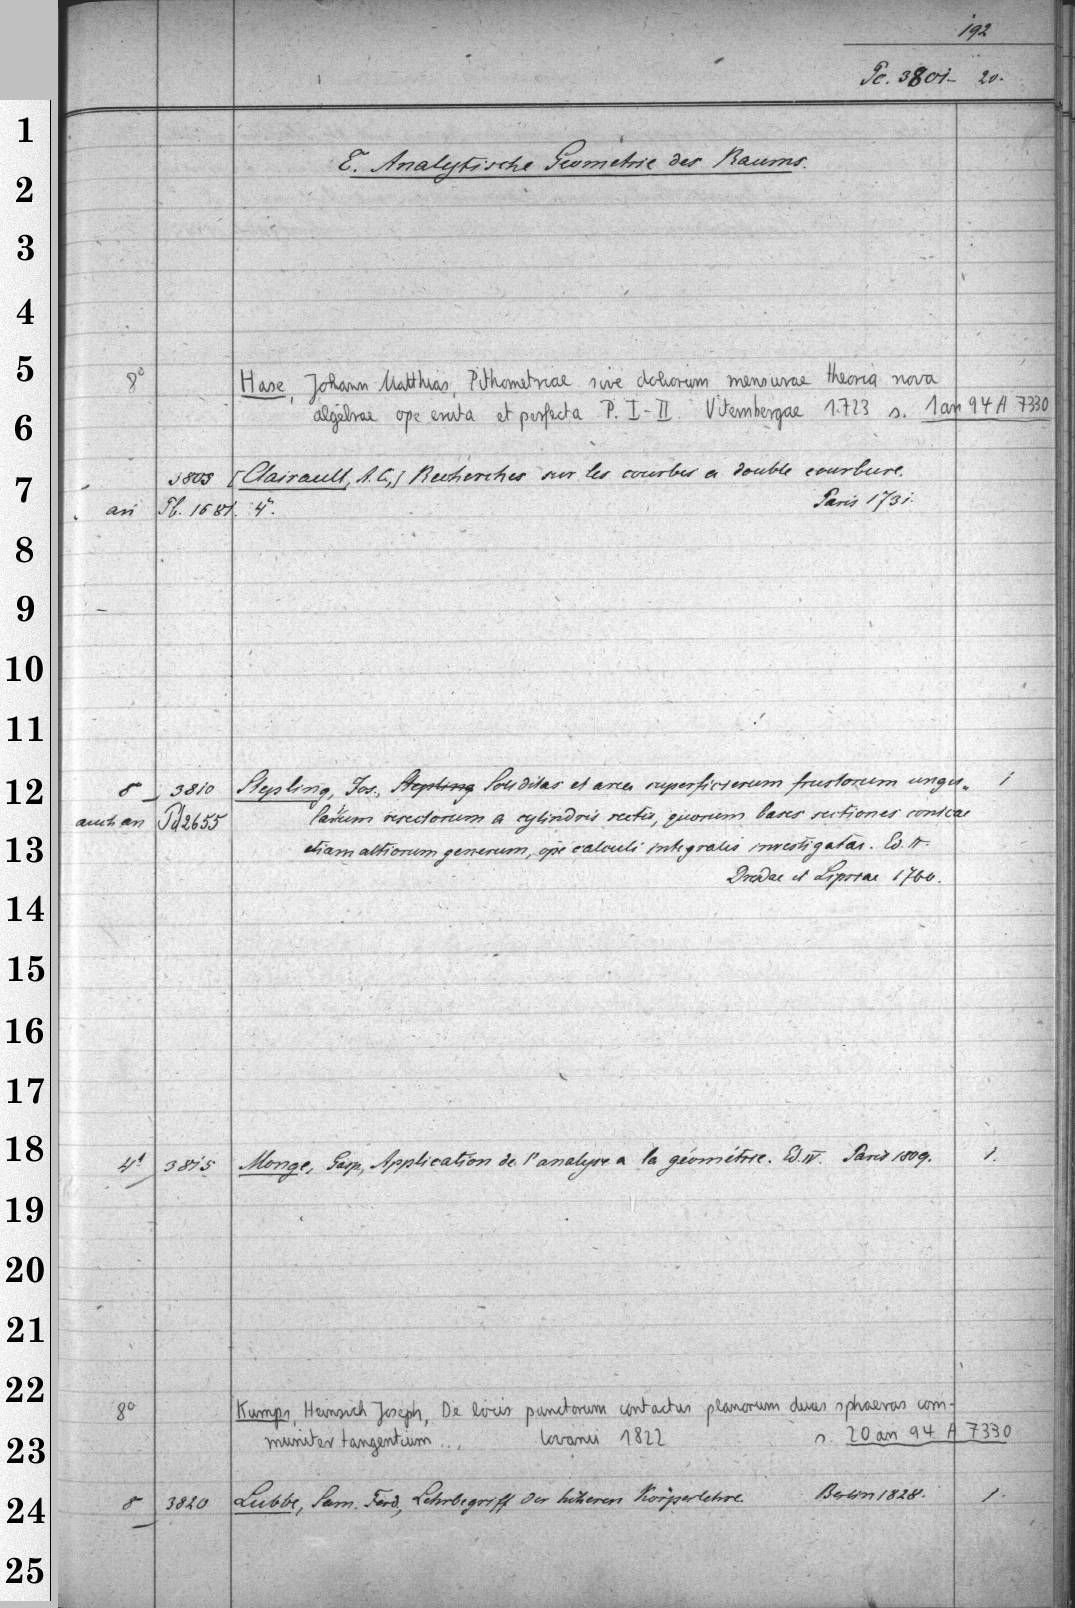 192
Pc. 3801- 20.
E. Analytische Geometrie des Raums.
8° Hase, Johann Matthias, Pithometriae sive doliorum mensurae theoria nova
algebrae ope eruta et perfecta P. I-II. Vitembergae 1723 s. 1 an 94 A 7330
3803 [Clairault, A. C.,] Recherches sur les courbes a double courbure.
an Pb. 1681. 4°. Paris 1731.
8 3810 Stepling, Jos., Stepling Soliditas et area superficierum frustorum ungu-
auch an Pd 2655 larum resectorum a cylindris rectis, quorum bases sectiones conicae
etiam altiorum generum, ope calculi integralis investigatas. Ed. II.
Dresdae et Lipsiae 1760.
1
4° 3815 Monge, Gasp., Application de l'analyse a la géométrie. Ed. IV. Paris 1809. 1.
8° Kumps, Heinrich Joseph, De locis punctorum contactus planorum duas sphaeras com-
muniter tangentium ... Lovanii 1822 s. 20 an 94 A 7330
8 3820 Lubbe, Sam. Ferd., Lehrbegriff der höheren Körperlehre. Berlin 1828. 1.
1
2
3
4
5
6
7
8
9
10
11
12
13
14
15
16
17
18
19
20
21
22
23
24
25